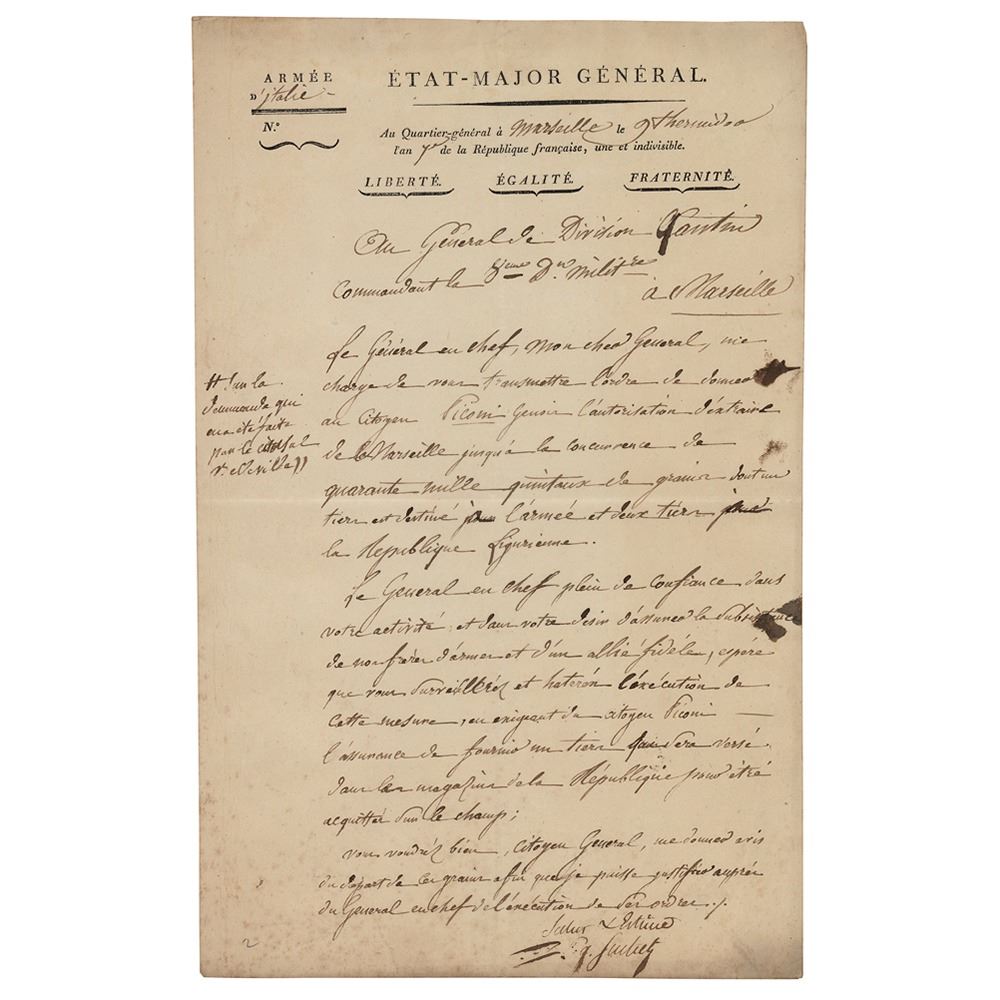 ARMÉE
D'italie
N.º
ÉTAT-MAJOR GÉNÉRAL.
Au Quartier-général à Marseille le 9 thermidor
l'an 7e de la République française, une et indivisible.
LIBERTÉ. ÉGALITÉ. FRATERNITÉ.
Au Général de Division Quantin
Commandant la 8eme Don. Militre
à Marseille
Le Général en chef, mon cher General, me
charge de vous transmettre l'ordre de donner
au Citoyen Piconi Genois l'autorisation d'extraire
de Marseille jusqu'à la concurrence de
quarante mille quintaux de grains dont un
tiers est destiné pour l'armeé et deux tiers pour
la République Ligurienne.
# sur la
demande qui
en a été faite
par le
Le General en chef plein de confiance dans
votre activité, et dans votre désir d'assurer la subsistance
de nos frères d'armes et d'un allié fidèle, espère
que vous surveillerés et haterés l'éxécution de
cette mesure, en exigeant du citoyen Piconi
l'assurance de fournir un tiers qui sera versé
dans les magazins de la République pour être
acquittés sur le champ;
vous voudréz bien, Citoyen General, me donner avis
du départ de ces grains afin que je puisse justifier auprès
du General en chef de l'éxécution de ses ordres ./.
Salut & Estime
Suchet
2